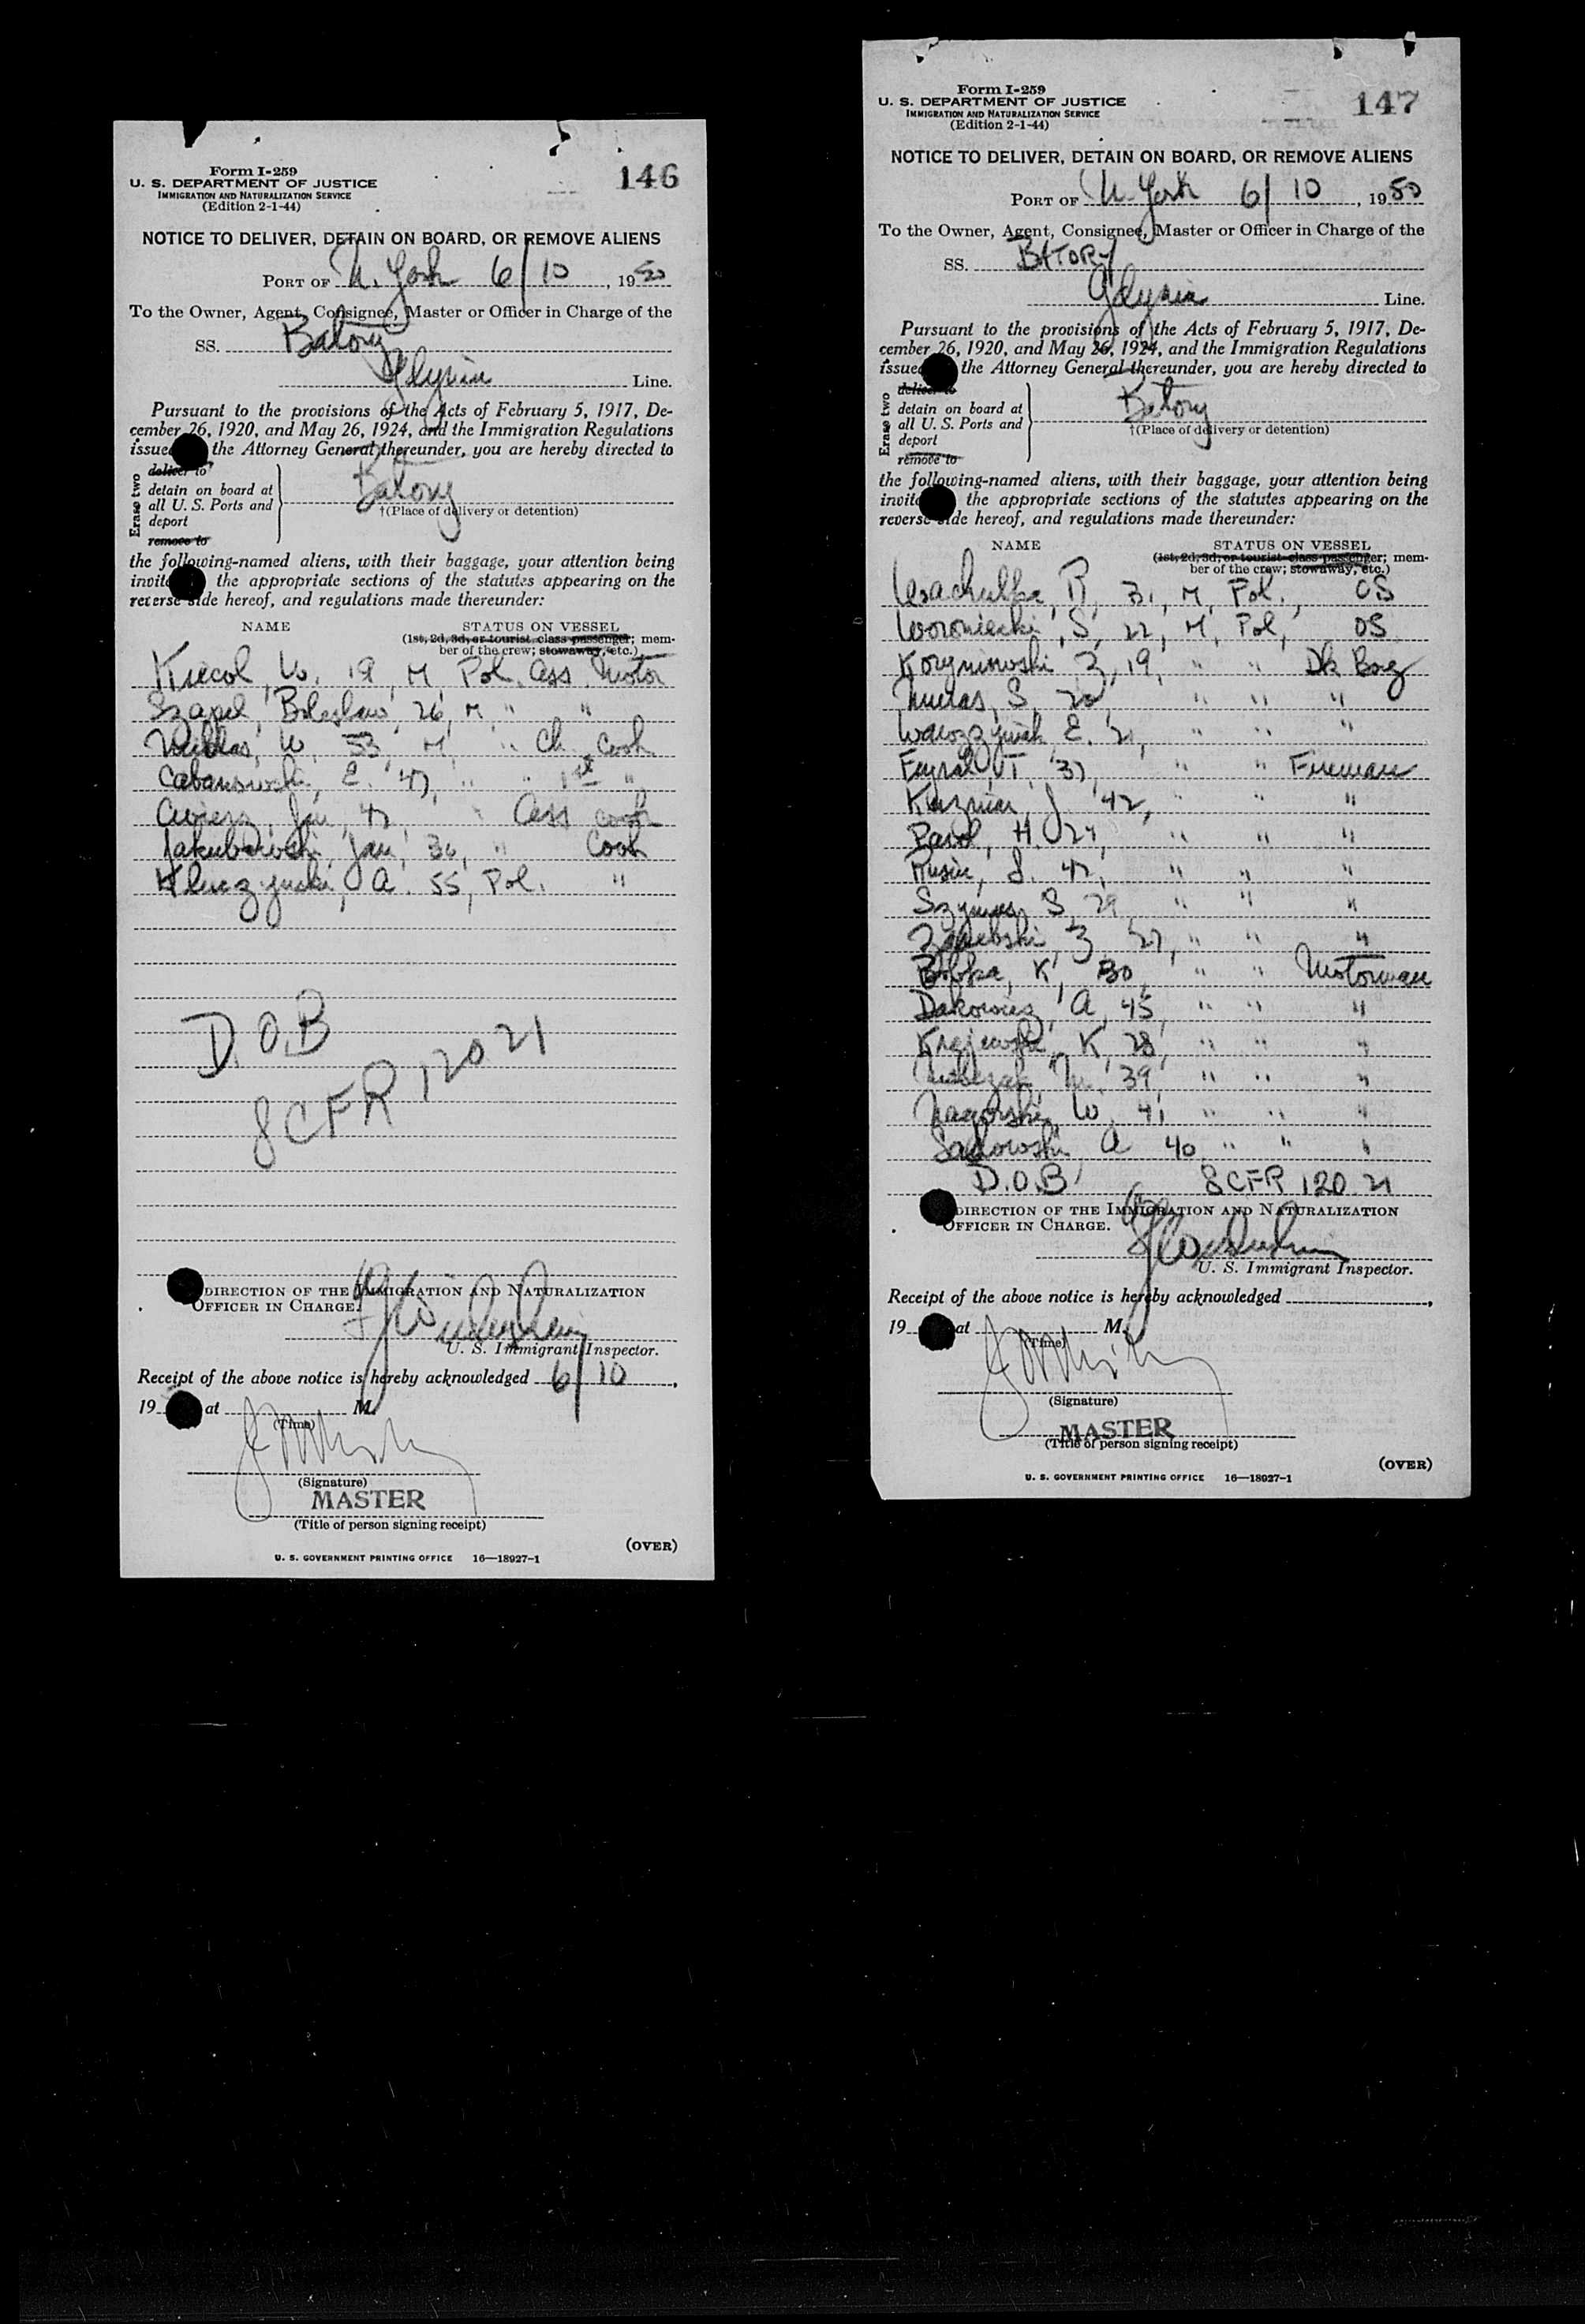 Form I-259
U. S. DEPARTMENT OF JUSTICE
IMMIGRATION AND NATURALIZATION SERVICE
(Edition 2-1-44)
146
NOTICE TO DELIVER, DETAIN ON BOARD, OR REMOVE ALIENS
PORT OF N. York 6/10, 1950
To the Owner, Agent, Consignee, Master or Officer in Charge of the
SS. Batory
Gdynia Line.
Pursuant to the provisions of the Acts of February 5, 1917, De-
cember 26, 1920, and May 26, 1924, and the Immigration Regulations
issued the Attorney General thereunder, you are hereby directed to
Erase two
deliver to
detain on board at
all U. S. Ports and
deport
remove to
Batory
†(Place of delivery or detention)
the following-named aliens, with their baggage, your attention being
invite the appropriate sections of the statutes appearing on the
reverse side hereof, and regulations made thereunder:
NAME STATUS ON VESSEL
(1st, 2d, 3d, or tourist class passenger; mem-
ber of the crew; stowaway, etc.)
W. 19, M, Pol. Ass. Motor
Boleslaw, 26, M, " "
W, 53, M, " Ch. Cook
E. 47, " " 1st "
Jan, 42 " Ass cook
Jakubowski, Jan, 36, " Cook
A. 55, Pol. "
D.O.B
8CFR 120 21
DIRECTION OF THE IMMIGRATION AND NATURALIZATION
OFFICER IN CHARGE.
U. S. Immigrant Inspector.
Receipt of the above notice is hereby acknowledged 6/10,
19 at M.
(Time)
(Signature)
MASTER
(Title of person signing receipt)
(OVER)
U. S. GOVERNMENT PRINTING OFFICE 16—18927-1
Form I-259
U. S. DEPARTMENT OF JUSTICE
IMMIGRATION AND NATURALIZATION SERVICE
(Edition 2-1-44)
147
NOTICE TO DELIVER, DETAIN ON BOARD, OR REMOVE ALIENS
PORT OF N. York 6/10, 1950
To the Owner, Agent, Consignee, Master or Officer in Charge of the
SS. BATORY
Gdynia Line.
Pursuant to the provisions of the Acts of February 5, 1917, De-
cember 26, 1920, and May 26, 1924, and the Immigration Regulations
issued the Attorney General thereunder, you are hereby directed to
Erase two
deliver to
detain on board at
all U. S. Ports and
deport
remove to
Batory
†(Place of delivery or detention)
the following-named aliens, with their baggage, your attention being
invite the appropriate sections of the statutes appearing on the
reverse side hereof, and regulations made thereunder:
NAME STATUS ON VESSEL
(1st, 2d, 3d, or tourist class passenger; mem-
ber of the crew; stowaway, etc.)
R, 31, M, Pol., OS
Woroniecki, S, 22, M, Pol, OS
Z, 19, " " Dk Boy
S, 20, " " "
E. 21, " " "
T, 37, " " Fireman
Kuzniar, J 42, " " "
H. 27, " " "
42, " " "
S, 29, " " "
Z 27, " " "
K, 30, " " Motorman
Dakowicz, A, 45, " " "
K, 28, " " "
39 " " "
Nagorski, W, 41 " " "
Sadowski A 40 " " "
D.O.B 8CFR 120.21
DIRECTION OF THE IMMIGRATION AND NATURALIZATION
OFFICER IN CHARGE.
U. S. Immigrant Inspector.
Receipt of the above notice is hereby acknowledged ,
19 at M.
(Time)
(Signature)
MASTER
(Title of person signing receipt)
(OVER)
U. S. GOVERNMENT PRINTING OFFICE 16—18927-1